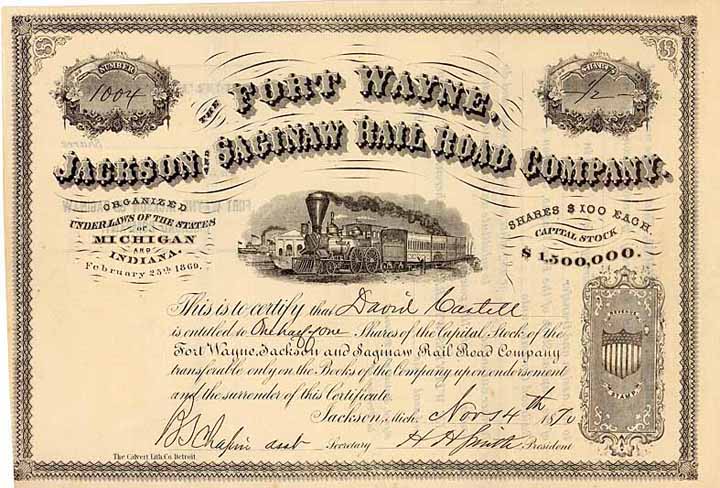 NUMBER
1004
SHARES
1/2
THE
FORT WAYNE,
JACKSON, AND SAGINAW RAIL ROAD COMPANY.
ORGANIZED
UNDER LAWS OF THE STATES
OF
MICHIGAN
AND
INDIANA.
February 25th 1869.
SHARES $100 EACH.
CAPITAL STOCK
$1,500,000.
This is to certify that David Castell
is entitled to One half of one Shares of the Capital Stock of the
Fort Wayne, Jackson and Saginaw Rail Road Company
transferable only on the Books of the Company upon endorsement
and the surrender of this Certificate.
Jackson, Mich. Nov 4th 1870
B S Chapin asst Secretary H H Smith President
The Calvert Lith. Co. Detroit.